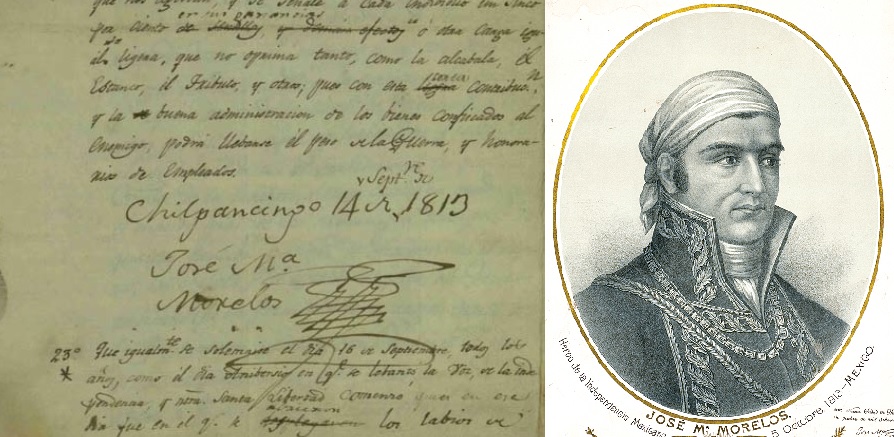 por ciento de semillas y demas efectos ó otra carga igu-
al, ligera, que no oprima tanto, como la alcabala, el
Estanco, el Tributo, y otros; pues con esta ligera contribucn.
y la buena administracion de los bienes confiscados al
Enemigo, podrá llebarse el peso de la Guerra, y honora-
rios de Empleados.
Chilpancingo 14 de Septre. de 1813
José Ma.
Morelos
23º Que igualmte. se solemnise el dia 16 de Septiembre, todos los
años, como el dia Anibersario en q. se lebantó la Voz, de la Inde
pendencia, y ntra. Santa Libertad comenzó, pues en ese
dia fue en el q. se los labios de
Heroe de la Independencia Mexicana
JOSÉ Ma. MORELOS.
5 Octubre 1812 - MEXICO.